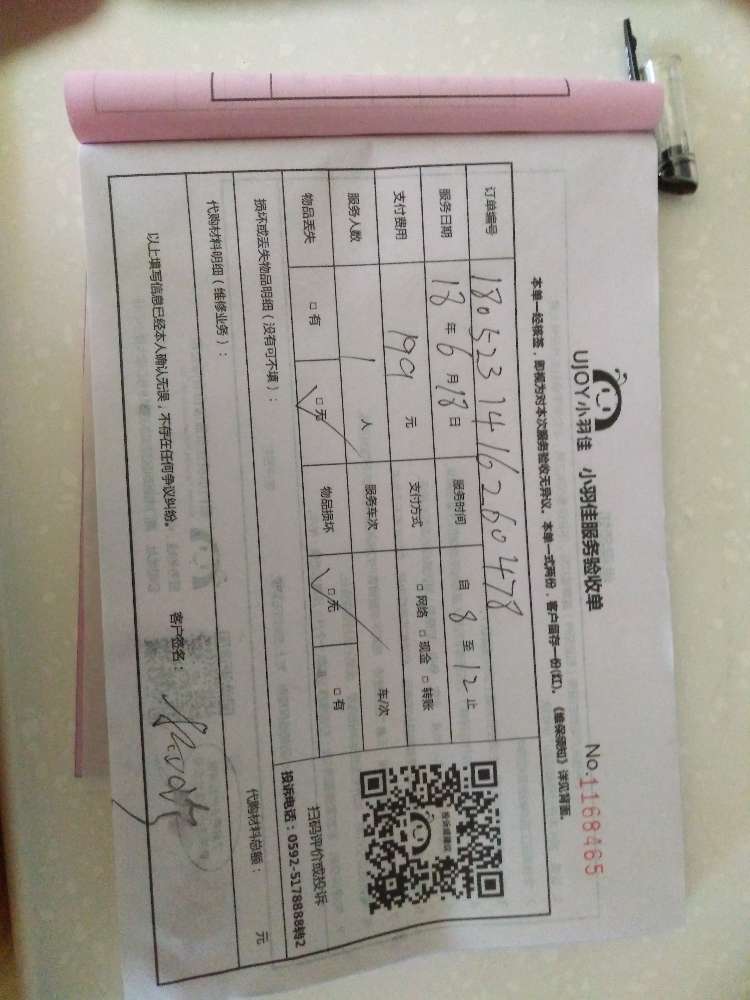 UJOY小羽佳 小羽佳服务验收单 No.1168465
本单一经核签，即视为对本次服务验收无异议。本单一式两份，客户留存一份(红)。《维保须知》详见背面。
订单编号 1805231416260478
服务日期 18年6月18日 服务时间 自8至12止
支付费用 199元 支付方式 □网络 □现金 □转账
服务人数 1人 服务车次 车/次
物品丢失 □有 □无 物品损坏 □无 □有
扫码评价或投诉
投诉电话：0592-5178888转2
损坏或丢失物品明细（没有可不填）：
代购材料明细（维修业务）： 代购材料总额： 元
以上填写信息已经本人确认无误，不存在任何争议纠纷。 客户签名：